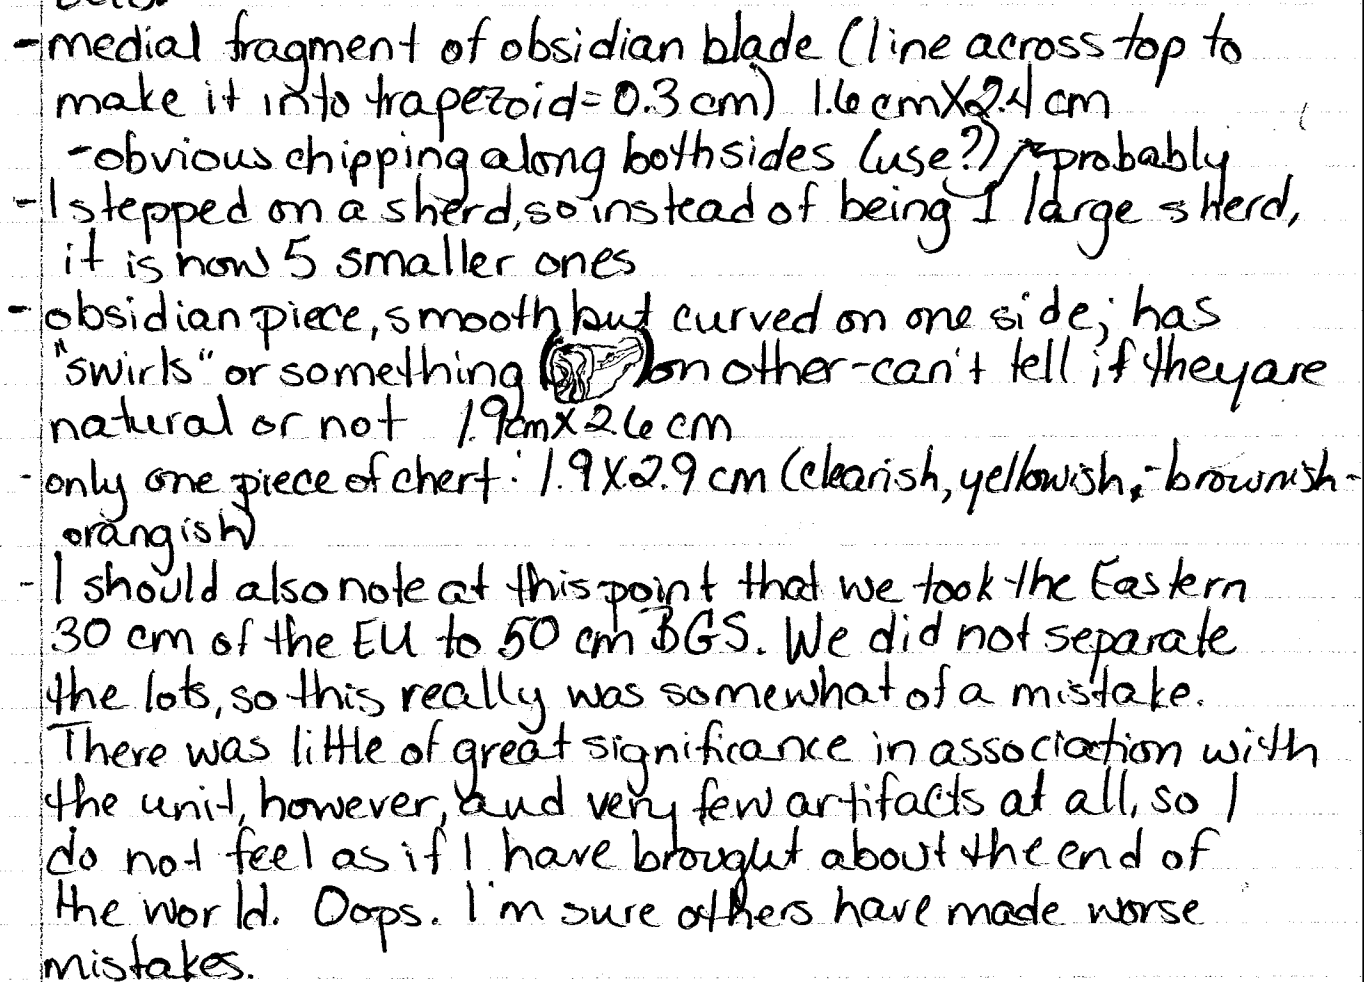 -medial fragment of obsidian blade (line across top to
make it into trapezoid=0.3cm) 1.6cmX2.4cm
-obvious chipping along both sides (use?) probably
-I stepped on a sherd, so instead of being 1 large sherd,
it is now 5 smaller ones
-obsidian piece, smooth but curved on one side; has
"swirls" or something ( ) on other-can't tell if they are
natural or not 1.9cmX2.6cm
-only one piece of chert: 1.9X2.9cm (clearish, yellowish,-brownish-
orangish)
-I should also note at this point that we took the Eastern
30 cm of the EU to 50 cm BGS. We did not separate
the lots, so this really was somewhat of a mistake.
There was little of great significance in association with
the unit, however, and very few artifacts at all, so I
do not feel as if I have brought about the end of
the world. Oops. I'm sure others have made worse
mistakes.